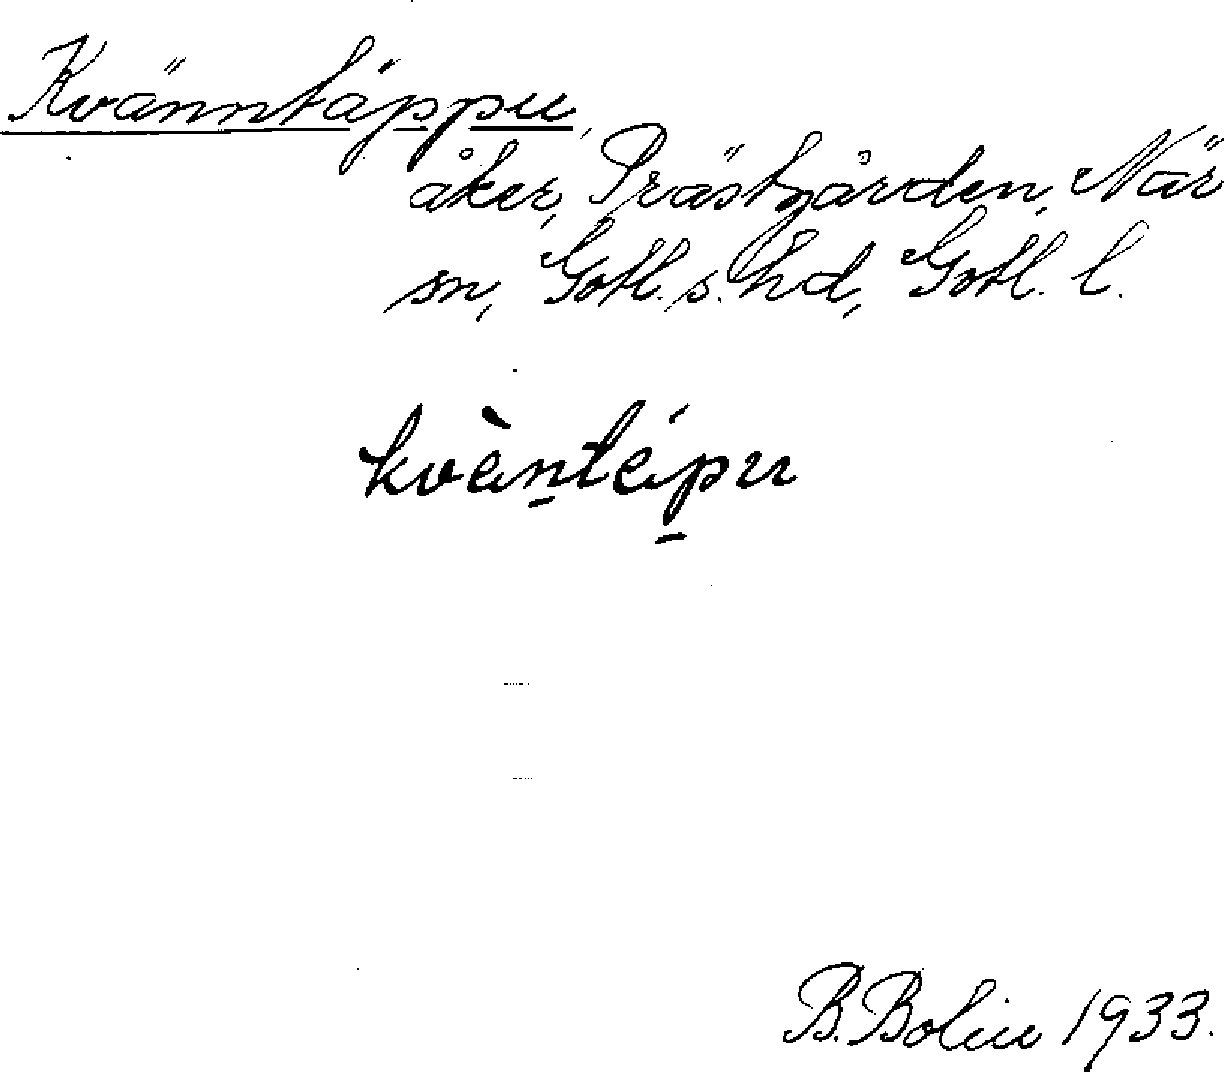 Kvänntäppu,
åker, Prästgården, När
sn, Gotl. s. hd, Gotl. l.
kvèn̠táp̠u
B. Bolin 1933.